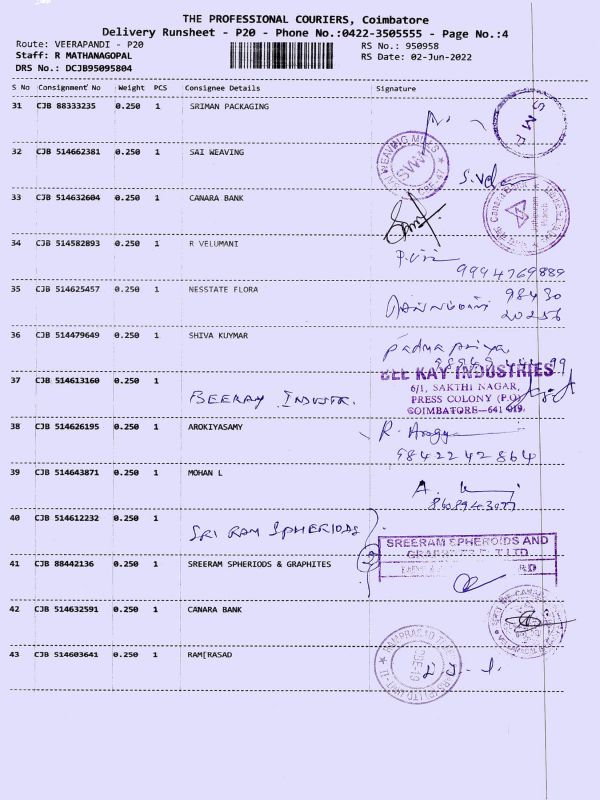 THE PROFESSIONAL COURIERS, Coimbatore
Delivery Runsheet - P20 - Phone No.:0422-3505555 - Page No.:4
Route: VEERAPANDI - P20 RS No.: 950958
Staff: R MATHANAGOPAL RS Date: 02-Jun-2022
DRS No.: DCJB95095804
S No Consignment No Weight PCS Consignee Details Signature
31 CJB 88333235 0.250 1 SRIMAN PACKAGING
S M P
32 CJB 514662381 0.250 1 SAI WEAVING
WEAVING MILLS
SWM
33 CJB 514632604 0.250 1 CANARA BANK
34 CJB 514582893 0.250 1 R VELUMANI
9994769889
35 CJB 514625457 0.250 1 NESSTATE FLORA
98430
20256
36 CJB 514479649 0.250 1 SHIVA KUYMAR
Padma priya
37 CJB 514613160 0.250 1 BEERAY INDUSTR.
BEE KAY INDUSTRIES
6/1, SAKTHI NAGAR,
PRESS COLONY (P.O)
COIMBATORE-641 019.
38 CJB 514626195 0.250 1 AROKIYASAMY
9842242864
39 CJB 514643871 0.250 1 MOHAN L
40 CJB 514612232 0.250 1 SRI RAM SPHERIODS
SREERAM SPHEROIDS AND
41 CJB 88442136 0.250 1 SREERAM SPHERIODS & GRAPHITES
42 CJB 514632591 0.250 1 CANARA BANK
43 CJB 514603641 0.250 1 RAM[RASAD